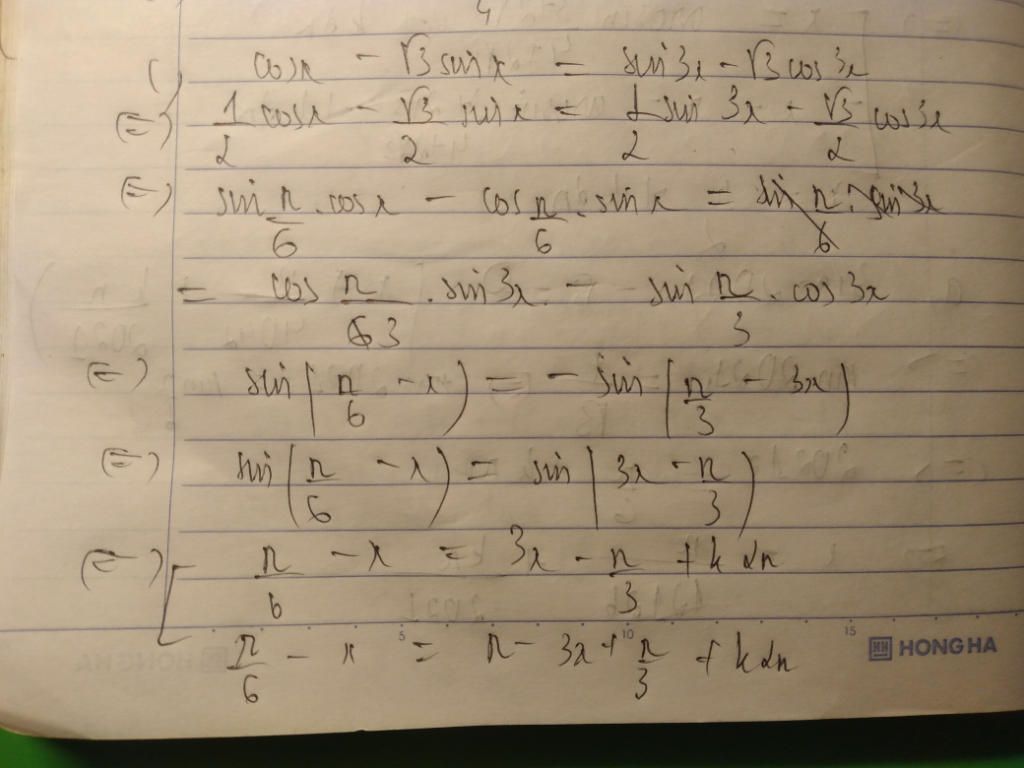 cosx - √3 sinx = sin3x - √3 cos3x
(=) 1/2 cosx - √3/2 sinx = 1/2 sin 3x - √3/2 cos3x
(=) sin π/6 . cosx - cos π/6 . sinx = sin π/6 . sin3x
= cos π/3 . sin3x - sin π/3 . cos3x
(=) sin(π/6 - x) = - sin(π/3 - 3x)
(=) sin(π/6 - x) = sin(3x - π/3)
(=) [ π/6 - x = 3x - π/3 + k2π
π/6 - x = π - 3x + π/3 + k2π
5 10 15
HONG HA